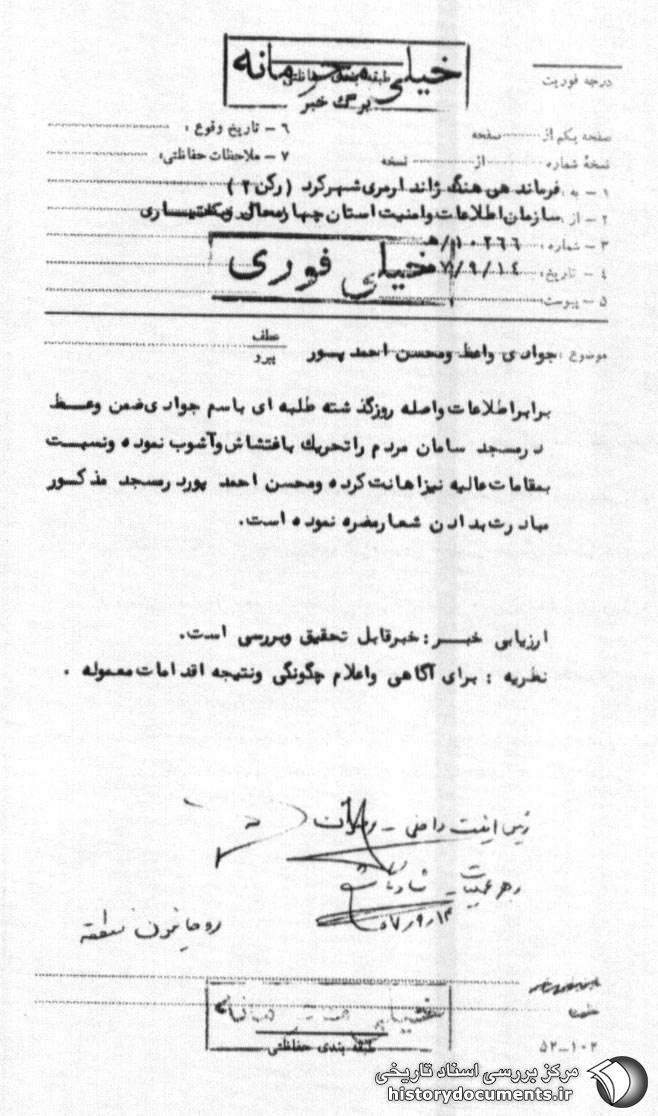 خیلی محرمانه
طبقه بندی حفاظتی
برگ خبر
درجه فوریت
صفحه یکم از صفحه
نسخهٔ شماره از نسخه
۱ - به : فرماندهی هنگ ژاندارمری شهرکرد (رکن ۲)
۲ - از : سازمان اطلاعات وامنیت استان چهارمحال وبختیاری
۳ - شماره : ۱۰۲۶۶/ه‍
۴ - تاریخ : ۵۷/۹/۱۴
۵ - پیوست
۶ - تاریخ وقوع :
۷ - ملاحظات حفاظتی:
خیلی فوری
موضوع : جوادی واعظ ومحسن احمد پور
عطف
پیرو
برابراطلاعات واصله روزگذشته طلبه ای باسم جوادی ضمن وعظ
درمسجد سامان مردم راتحریک باغتشاش وآشوب نموده ونسبت
بمقامات عالیه نیزاهانت کرده ومحسن احمد پوردرمسجد مذکور
مبادرت بدادن شعارمضره نموده است.
ارزیابی خبر : خبرقابل تحقیق وبررسی است.
نظریه : برای آگاهی واعلام چگونگی ونتیجه اقدامات معموله .
رئیس امنیت داخلی -
رهبر عملیات -
۵۷/۹/۱۴
روحانیون منطقه
خیلی محرمانه
طبقه بندی حفاظتی
۵۲-۱۰۲
مرکز بررسی اسناد تاریخی
historydocuments.ir